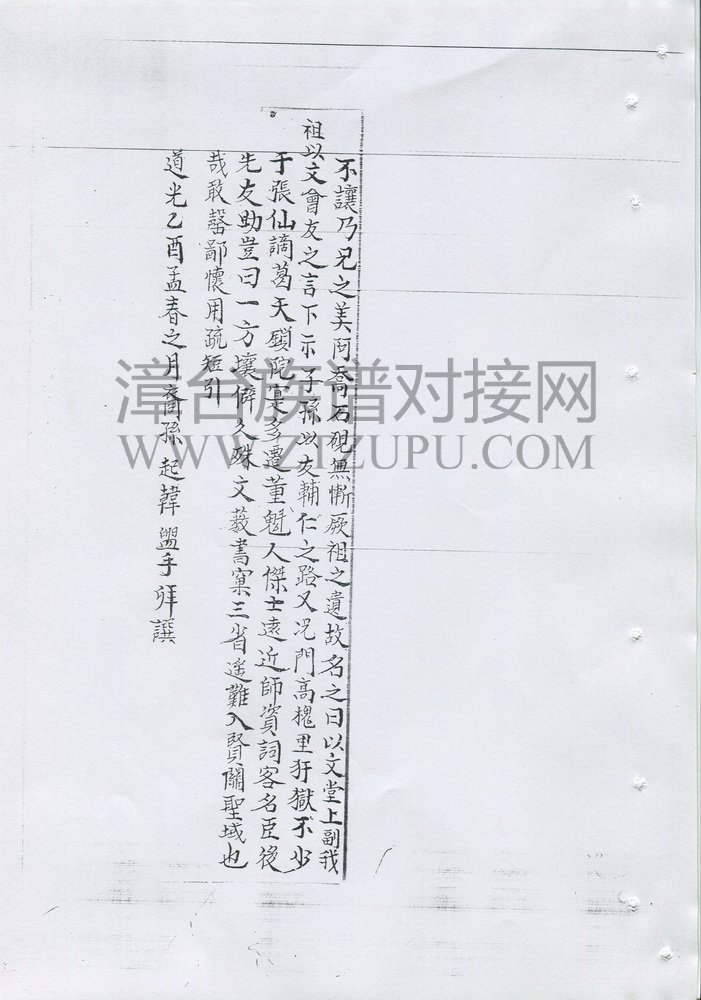 不讓乃兄之美阿喬石硯無慚厥祖之遺故名之曰以文堂上副我
祖以文會友之言下示子孫以友輔仁之路又况門高槐里犴獄不少
于張仙謫葛天鎖院寔多遷董魁人傑士遠近師資詞客名臣後
先友助豈曰一方壤僻久殊文薮書窠三省遙難入賢關聖域也
哉敢罄鄙懷用疏短引
道光乙酉孟春之月裔孫起韓盥手拜譔
漳台族谱对接网
WWW.ZTZUPU.COM